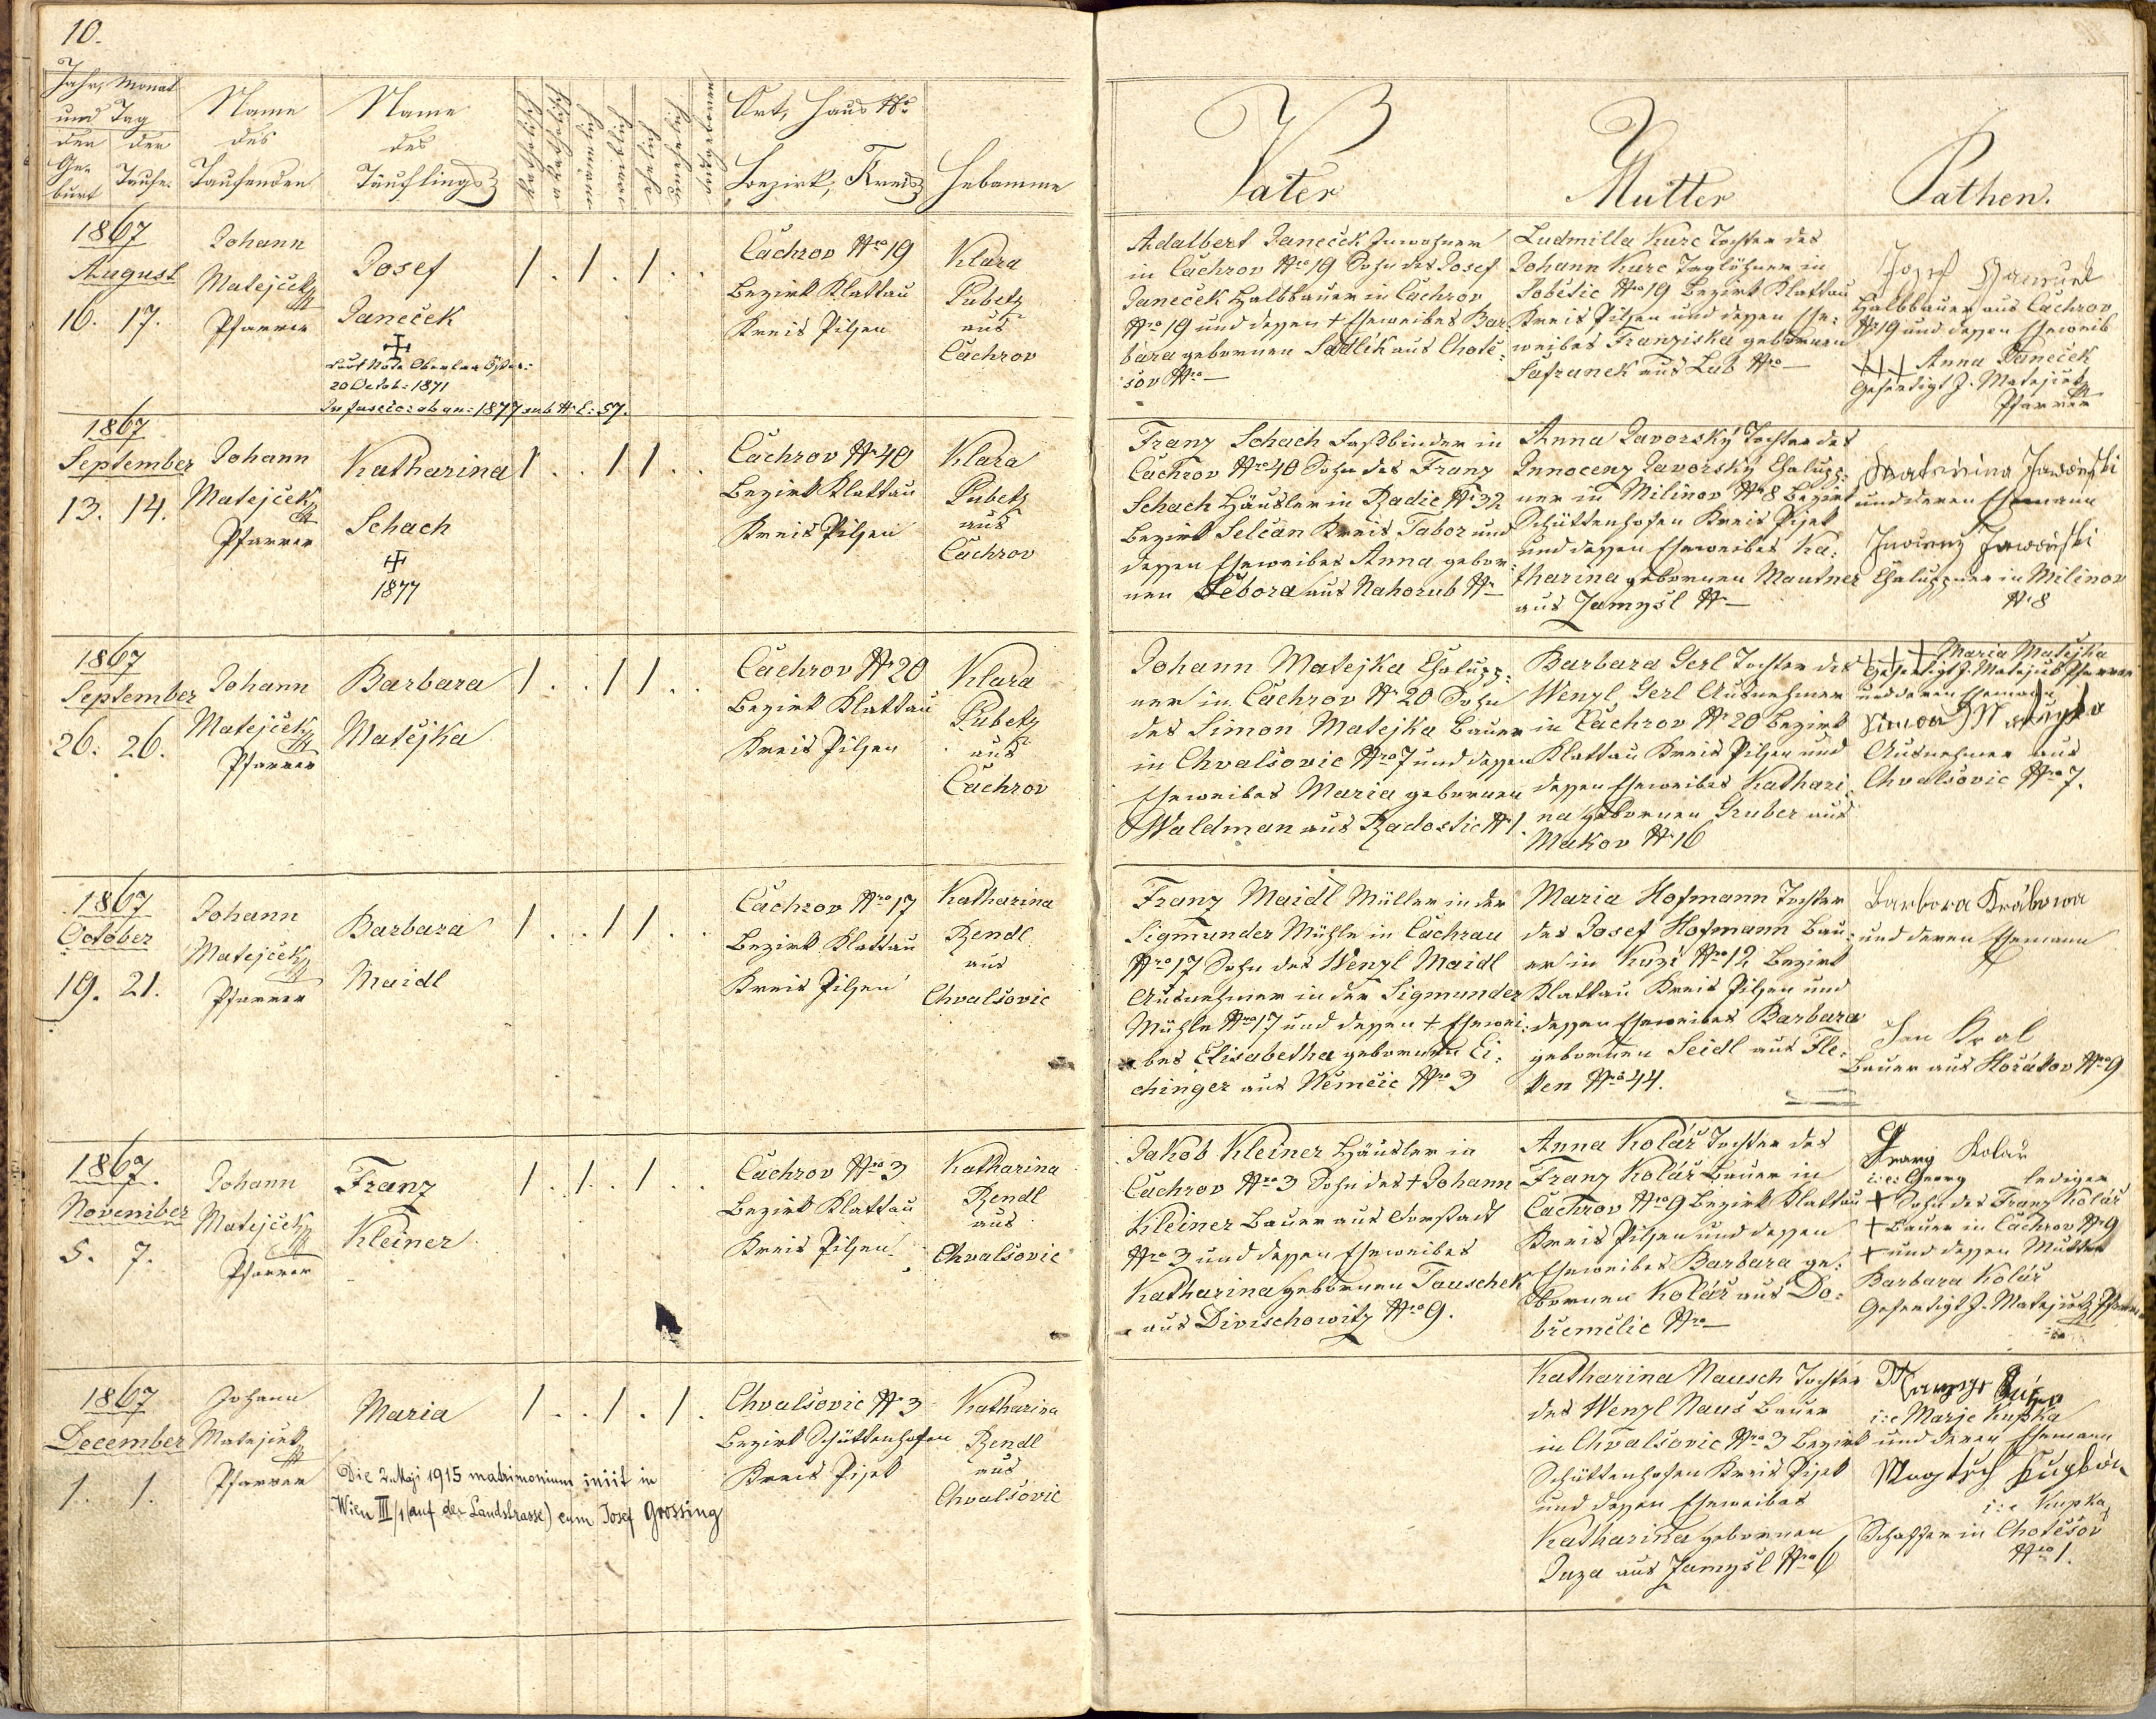 10.
Jahr, Monat
und Tag
der
Ge-
burt
der
Taufe.
Name
des
Taufenden
Name
des
Täuflings
katholisch
männlich
weiblich
ehelich
unehelich
Ort, Haus No
Bezirk, Kreis
Hebamme
Vater
Mutter
Pathen.
1867
August
16. 17.
Johann
Matejček
Pfarrer
Josef
Janeček
Laut Note
20 Octob: 1871
1 . 1 . 1 . .
Čachrov Nro 19
Bezirk Klattau
Kreis Pilsen
Klara
Pubetz
aus
Čachrov
Adalbert Janeček Inwohner
in Čachrov Nro 19 Sohn des Josef
Janeček Halbbauer in Čachrov
Nro 19 und dessen + Eheweibes Bar-
bara gebornen Sedlik aus Chotě-
šov Nro —
Ludmilla Kurc Tochter des
Johann Kurc Taglöhner in
Sobětic Nro 19 Bezirk Klattau
Kreis Pilsen und dessen Ehe-
weibes Franziska gebornen
Safranek aus Lub Nro —
Josef
Halbbauer aus Čachrov
No 19 und dessen Eheweib
+++ Anna Janeček
Gefertigt J. Matejček
Pfarrer
1867
September
13. 14.
Johann
Matejček
Pfarrer
Katharina
Schach
1877
1 . . 1 1 . .
Čachrov No 40
Bezirk Klattau
Kreis Pilsen
Klara
Pubetz
aus
Čachrov
Franz Schach Faßbinder in
Čachrov Nro 40 Sohn des Franz
Schach Häusler in Radič No 32
Bezirk Selčan Kreis Tabor und
dessen Eheweibes Anna gebor-
nen Debora aus Nahorub No —
Anna Javorský Tochter des
Innocenz Javorský Chalupp-
ner in Milinov No 8 Bezirk
Schüttenhofen Kreis Pisek
und dessen Eheweibes Ka-
tharina gebornen Mautner
aus Jamyšl No —
und deren Ehemann
Chaluppner in Milinov
No 8
1867
September
26. 26.
Johann
Matejček
Pfarrer
Barbara
Matějka
1 . . 1 1 . .
Čachrov No 20
Bezirk Klattau
Kreis Pilsen
Klara
Pubetz
aus
Čachrov
Johann Matejka Chalupp-
ner in Čachrov No 20 Sohn
des Simon Matejka Bauer
in Chvalšovic Nro 7 und dessen
Eheweibes Maria gebornen
Waldman aus Radostic No 1
Barbara Gerl Tochter des
Wenzl Gerl Ausnehmer
in Čachrov No 20 Bezirk
Klattau Kreis Pilsen und
dessen Eheweibes Kathari-
na gebornen Gruber aus
Makov No 16
+++ Maria Matějka
Gefertigt J. Matejček Pfarrer
und deren Ehemann
Ausnehmer aus
Chvalšovic Nro 7.
1867
October
19. 21.
Johann
Matejček
Pfarrer
Barbara
Maidl
1 . . 1 1 . .
Čachrov Nro 17
Bezirk Klattau
Kreis Pilsen
Katharina
Rendl
aus
Chvalšovic
Franz Maidl Müller in der
Sigmunder Mühle in Čachrau
Nro 17 Sohn des Wenzl Maidl
Ausnehmer in der Sigmunder
Mühle Nro 17 und dessen + Ehewei-
bes Elisabetha gebornen Ei-
chinger aus Němčic Nro 3
Maria Hofmann Tochter
des Josef Hofmann Bau-
er in Kuzi Nro 12 Bezirk
Klattau Kreis Pilsen und
dessen Eheweibes Barbara
gebornen Seidl aus Fle-
ken Nro 44.
Barbora Králowa
und deren Ehemann
Jan Kral
Bauer aus Hořákov Nro 9
1867.
November
5. 7.
Johann
Matejček
Pfarrer
Franz
Kleiner
1 . 1 . 1 . .
Čachrov Nro 3
Bezirk Klattau
Kreis Pilsen
Katharina
Rendl
aus
Chvalšovic
Jakob Kleiner Häusler in
Čachrov Nro 3 Sohn des + Johann
Kleiner Bauer aus Dorstadt
Nro 3 und dessen Eheweibes
Katharina gebornen Tauschek
aus Divischowitz Nro 9.
Anna Kolář Tochter des
Franz Kolář Bauer in
Čachrov Nro 9 Bezirk Klattau
Kreis Pilsen und dessen
Eheweibes Barbara ge-
bornen Kolář aus Do-
břemělic Nro —
Georg Kolař
i: e: Georg lediger
+ Sohn des Franz Kolář
+ Bauer in Čachrov No 9
+ und dessen Mutter
Barbara Kolář
Gefertigt J. Matejček Pfarrer
1867
December
1. 1.
Johann
Matejček
Pfarrer
Maria
Die 2. Maji 1915 matrimonium iniit in
Wien III/1 (auf der Landstrasse) cum Josef Grossing
1 . . 1 . 1 .
Chvalšovic No 3
Bezirk Schüttenhofen
Kreis Pisek
Katharina
Rendl
aus
Chvalšovic
Katharina Nausch Tochter
des Wenzl Nauš Bauer
in Chvalšovic Nro 3 Bezirk
Schüttenhofen Kreis Pisek
und dessen Eheweibes
Katharina gebornen
Duza aus Jamyšl Nro 6
i: e Marje Kupka
und deren Ehemann
i: e Kupka
Schaffer in Chotěšov
Nro 1.